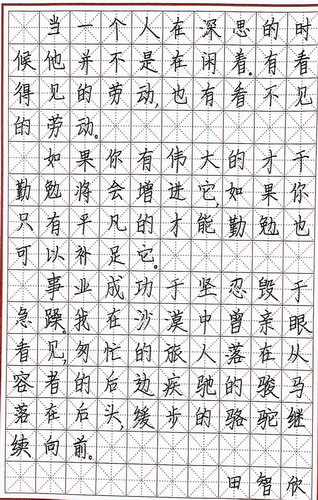 当一个人在深思的时
候他并不是在闲着。有看
得见的劳动，也有看不见
的劳动。
如果你有伟大的才干
勤勉将会增进它，如果你
只有平凡的才能勤勉也
可以补足它。
事业成功于坚忍毁于
急躁，我在沙漠中曾亲眼
看见，匆忙的旅人落在从
容者的后边疾驰的骏马
落在后头，缓步的骆驼继
续向前。
田智欣